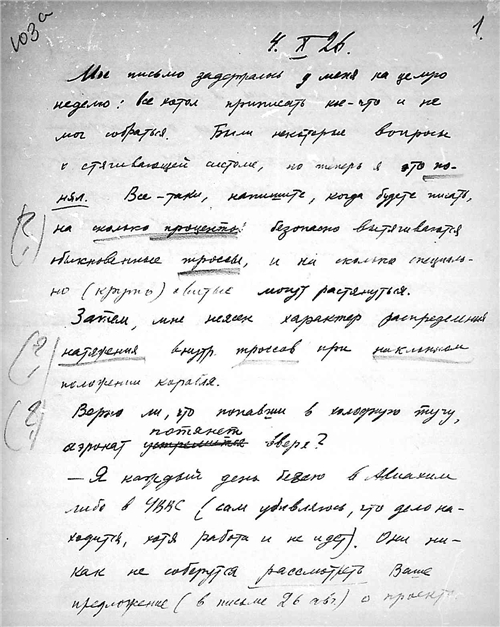 103а
1.
4. X 26.
Мое письмо задержалось у меня на целую
неделю: все хотел приписать кое-что и не
мог собраться. Были некоторые вопросы
к стягивающей системе, но теперь я это по-
нял. Все-таки, напишите, когда будете писать,
(?) на сколько проценто безопасно вытягиваются
обыкновенные троссы, и на сколько специаль-
но (круто) свитые могут растянуться.
Затем, мне неясен характер распределения
(?) натяжения внутр. троссов при наклонном
положении корабля.
(?) Верно ли, что попавши в холодную тучу,
потянет
аэронат устремится вверх?
— Я каждый день бегаю в Авиахим
либо в УВВС (сам удивляюсь, что дело на-
ходится, хотя работа и не идет). Они ни-
как не соберутся рассмотреть Ваше
предложение (в письме 26 авг.) о проекте